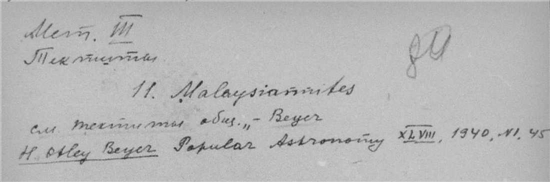 Мет. III
Тектиты
11. Malaysiannites
см тектиты общ. „– Beyer
H. Otley Beyer Popular Astronomy XLVIII, 1940, N1, 45